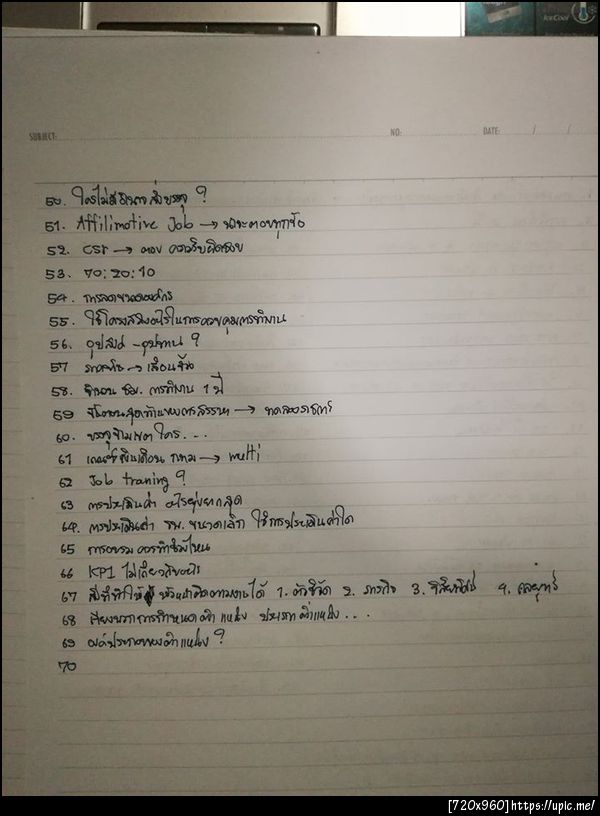 IceCool
SUBJECT: NO: DATE: / /
50. ใครไม่มีอำนาจสั่งบรรจุ ?
51. Affilimotive Job → ตอบทุกข้อ
52. CSr → ตอบ ความรับผิดชอบ
53. 70:20:10
54. การลดขนาดองค์กร
55. ใช้โครงสร้างอะไรในการควบคุมการทำงาน
56. อุปสงค์ - อุปทาน ?
57 → เลื่อนขั้น
58. ชม. การทำงาน 1 ปี
59 ขั้นตอนสุดท้ายของการสรรหา → ทดลองราชการ
60. บรรจุ ใคร...
61 เงินเดือน กทม → multi
62 Job traning ?
63 การประเมินค่า อะไรยุ่งยากสุด
64. การประเมินค่า รพ. ขนาดเล็ก ใช้การประเมินค่าใด
65 การอบรม ควรทำไหน
66 KPI ไม่เกี่ยวกับอะไร
67 สิ่งที่ทำให้ หัวหน้าติดตามงานได้ 1. ตัวชี้วัด 2. ภารกิจ 3. วิสัยทัศน์ 4. กลยุทธ์
68 การกำหนดตำแหน่ง ประเภทตำแหน่ง...
69 องค์ประกอบของตำแหน่ง ?
70
[720x960] https://upic.me/